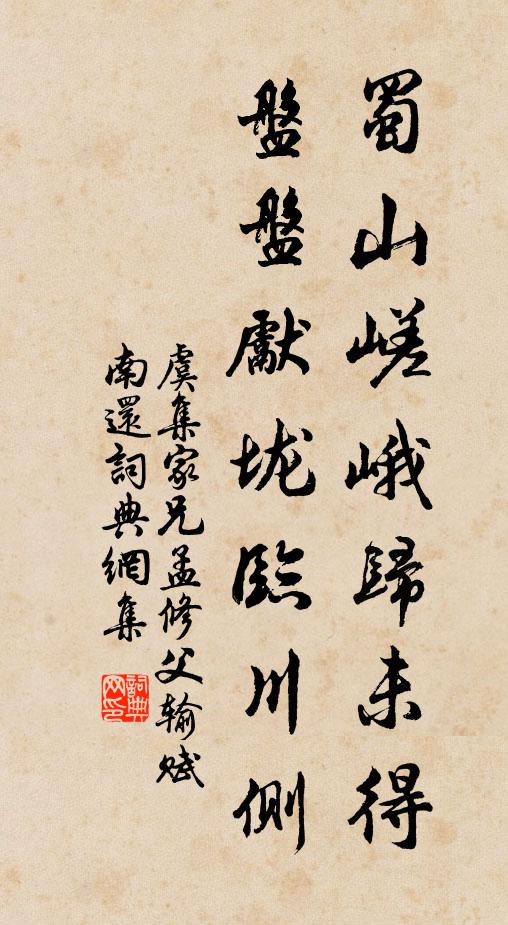 蜀山嵯峨歸未得
盤盤獻垅臨川側
虞集家兄孟修父輸賦
南還詞典網集
詞典
网印